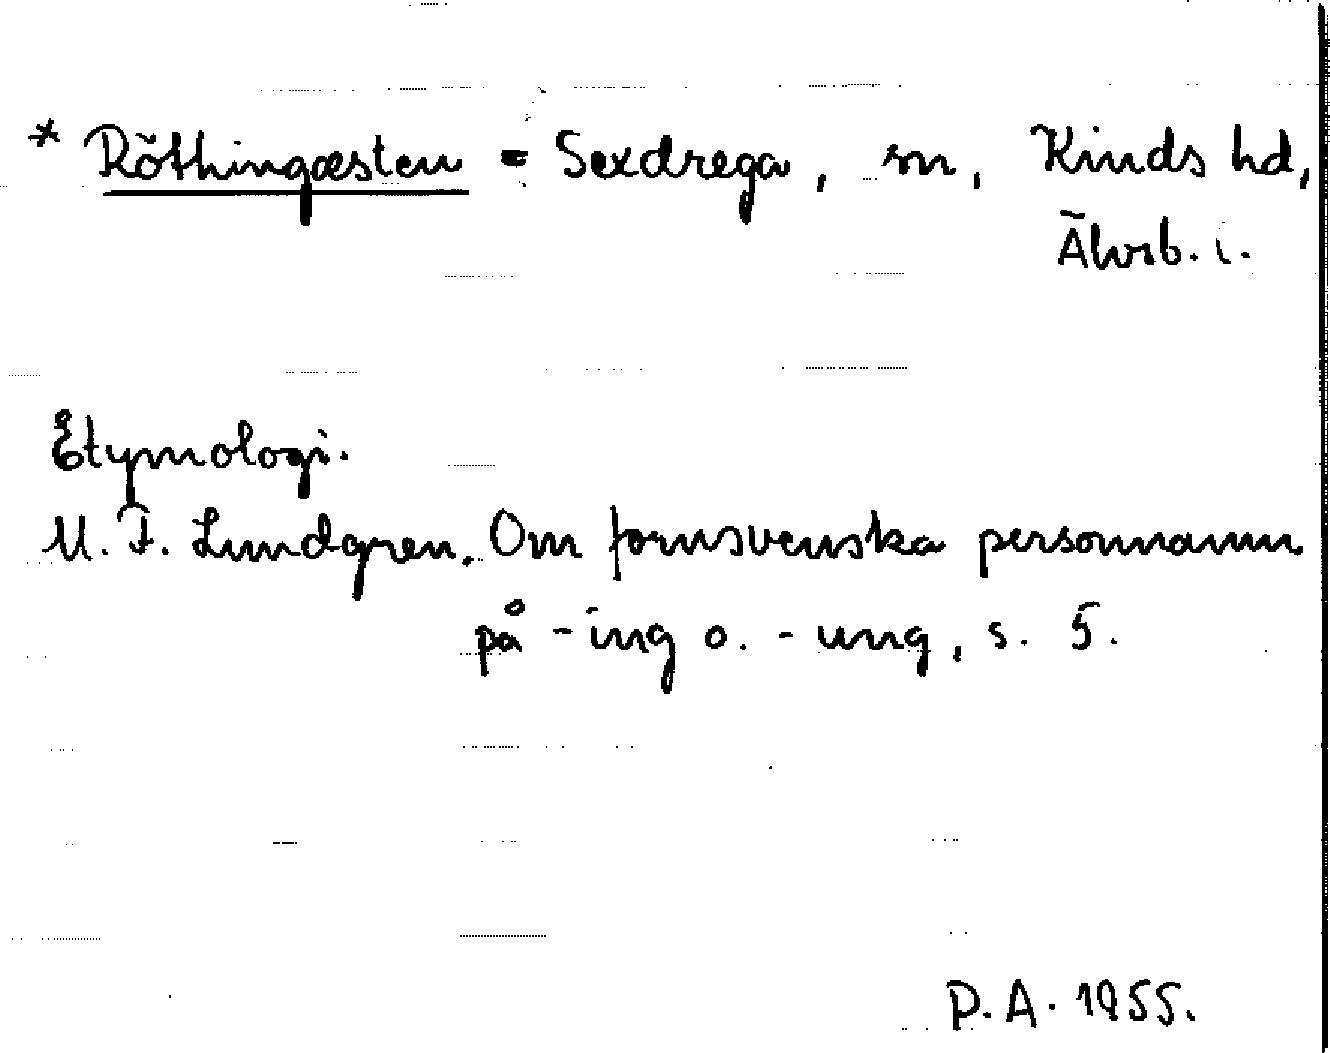 * Röthingæsten = Sexdrega, sn, Kinds hd,
Älvsb. l.
Etymologi.
M. F. Lundgren. Om fornsvenska personnamn
på -ing o. -ung, s. 5.
P.A. 1955.